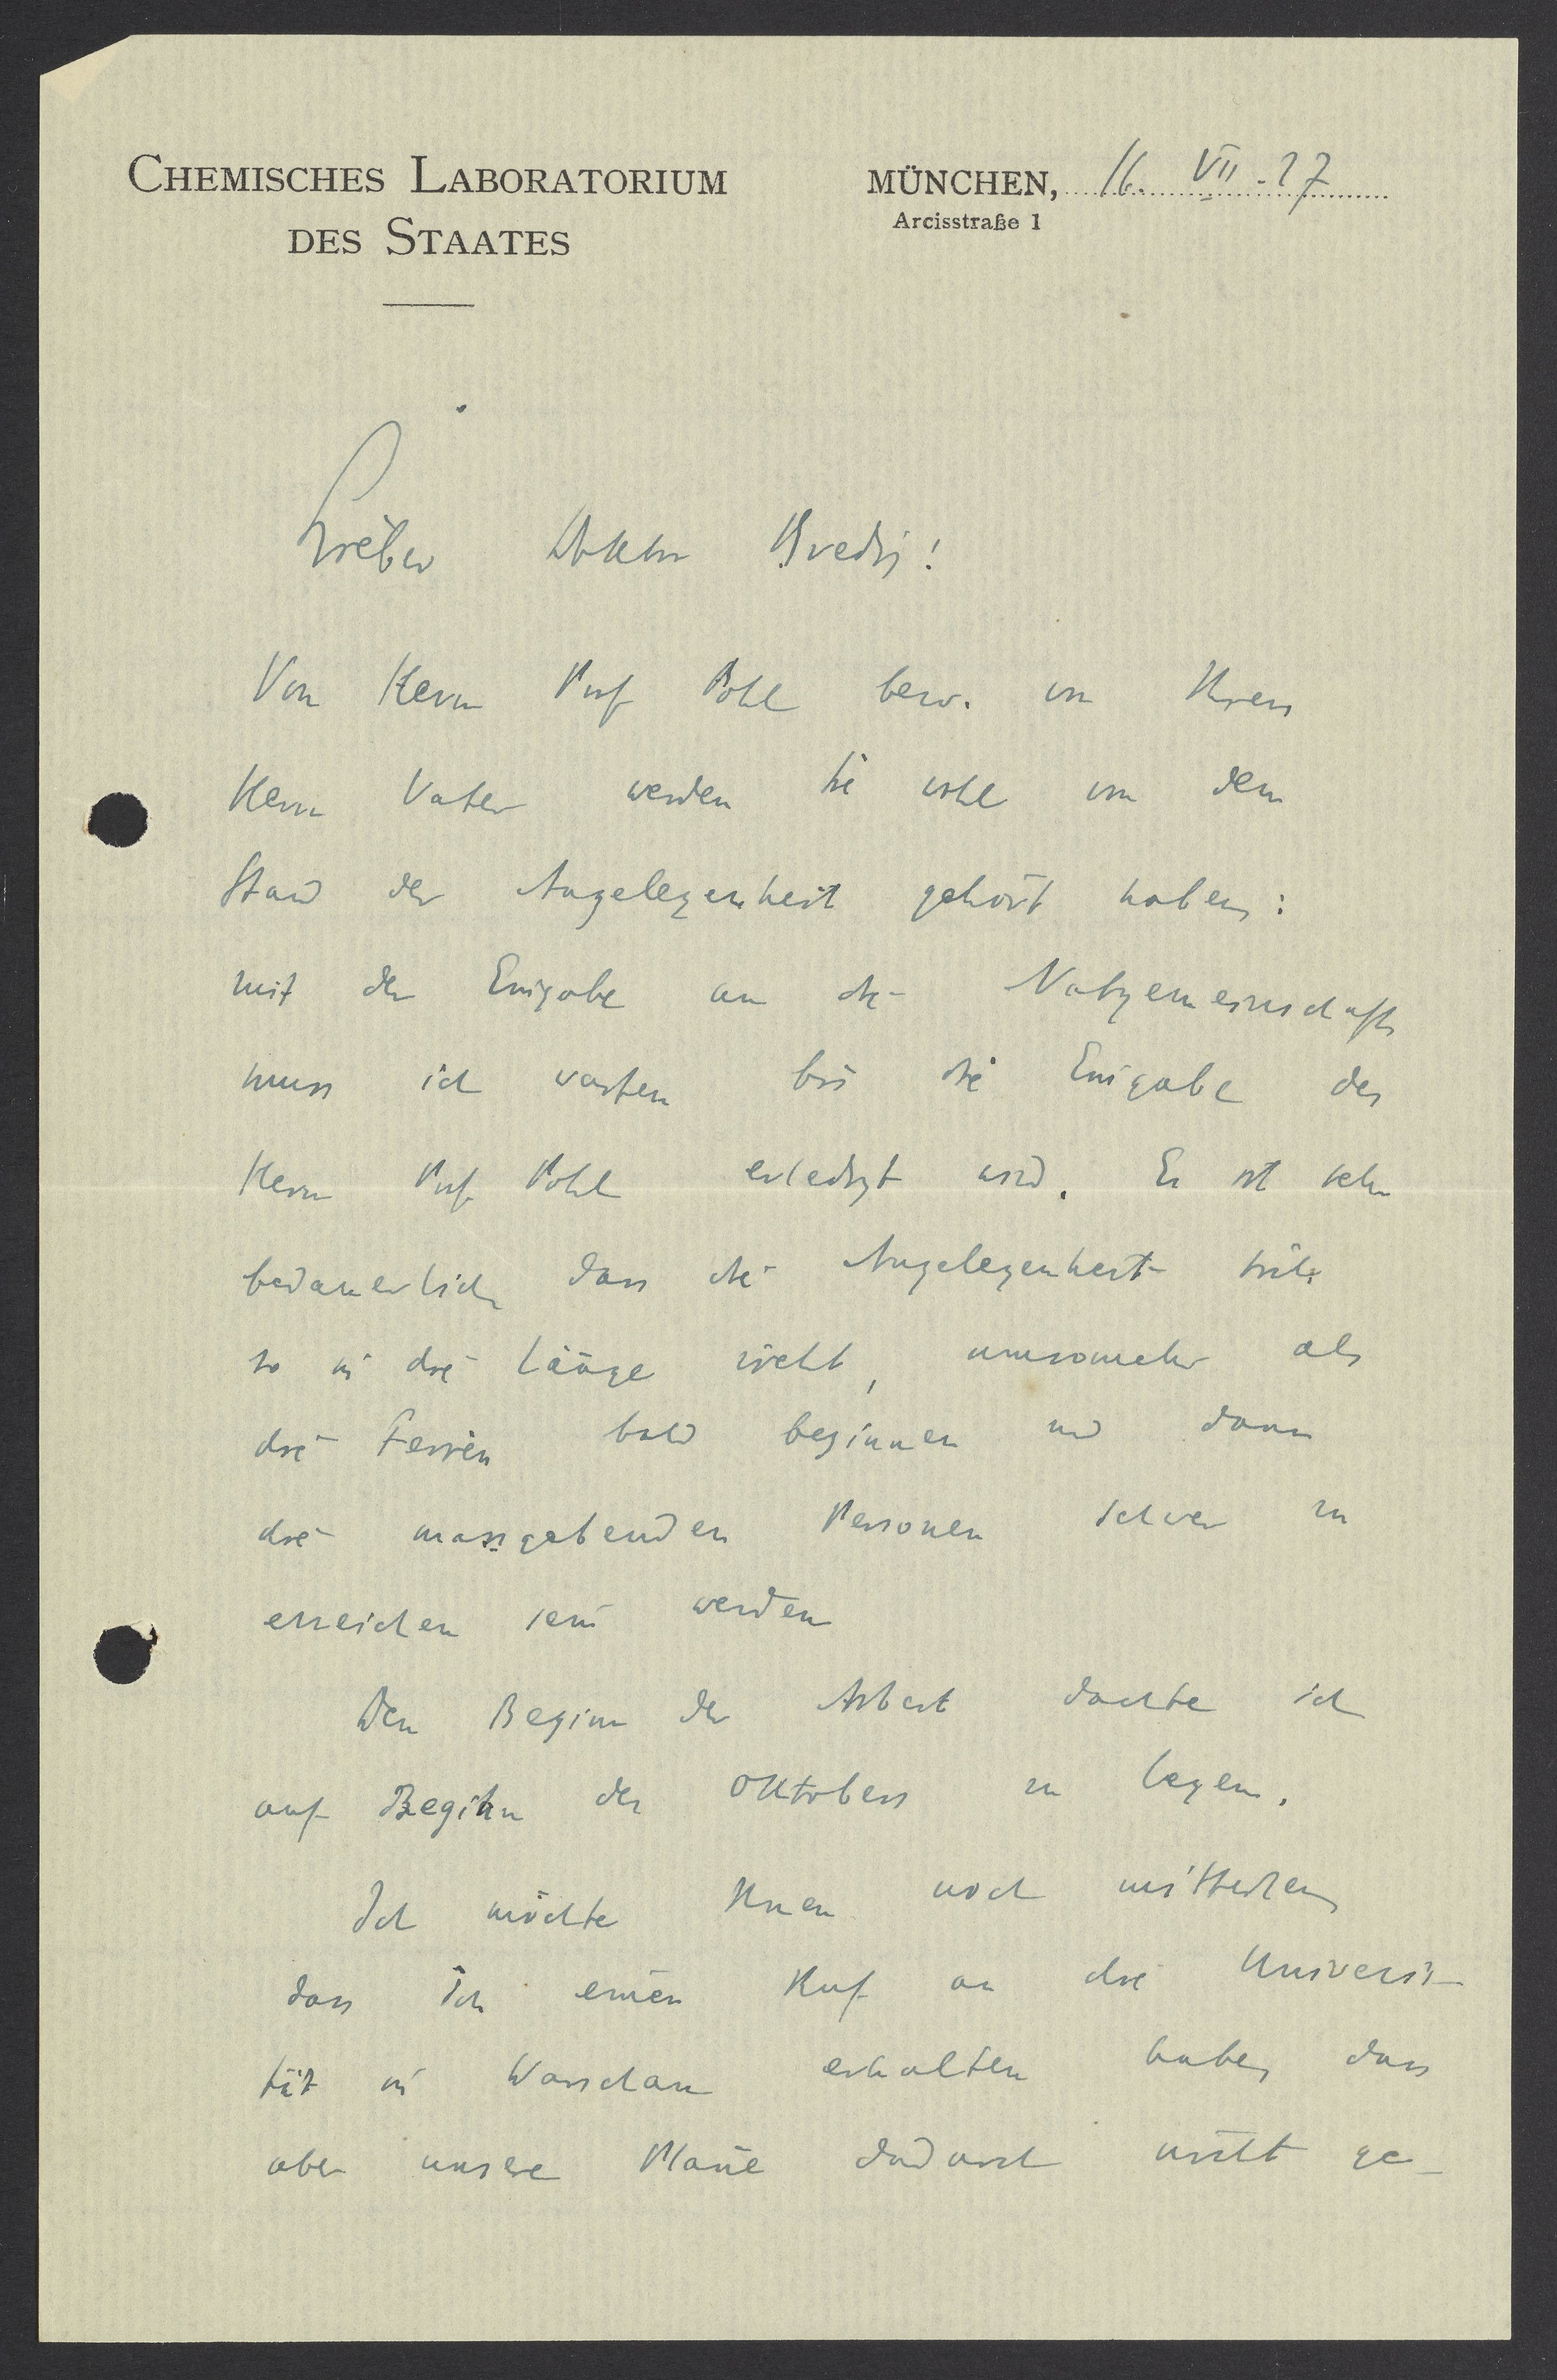 CHEMISCHES LABORATORIUM
DES STAATES
MÜNCHEN, 16. VII. 27
Arcisstraße 1
Lieber Doktor Bredig!
Von Herrn Prof Pohl bezw. von Ihrem
Herrn Vater werden Sie wohl von dem
Stand der Angelegenheit gehört haben:
mit der Eingabe an die Notgemeinschaft
muss ich warten bis die Eingabe des
Herrn Prof Pohl erledigt wird. Es ist sehr
bedauerlich dass die Angelegenheit sich
so in die Länge zieht, umsomehr als
die Ferien bald beginnen und dann
die massgebenden Personen schwer zu
erreichen sein werden
Den Beginn der Arbeit dachte ich
auf Beginn des Oktobers zu legen.
Ich möchte Ihnen noch mitteilen
dass ich einen Ruf an die Universi-
tät in Warschau erhalten habe, dass
aber unsere Pläne dadurch nicht ge-